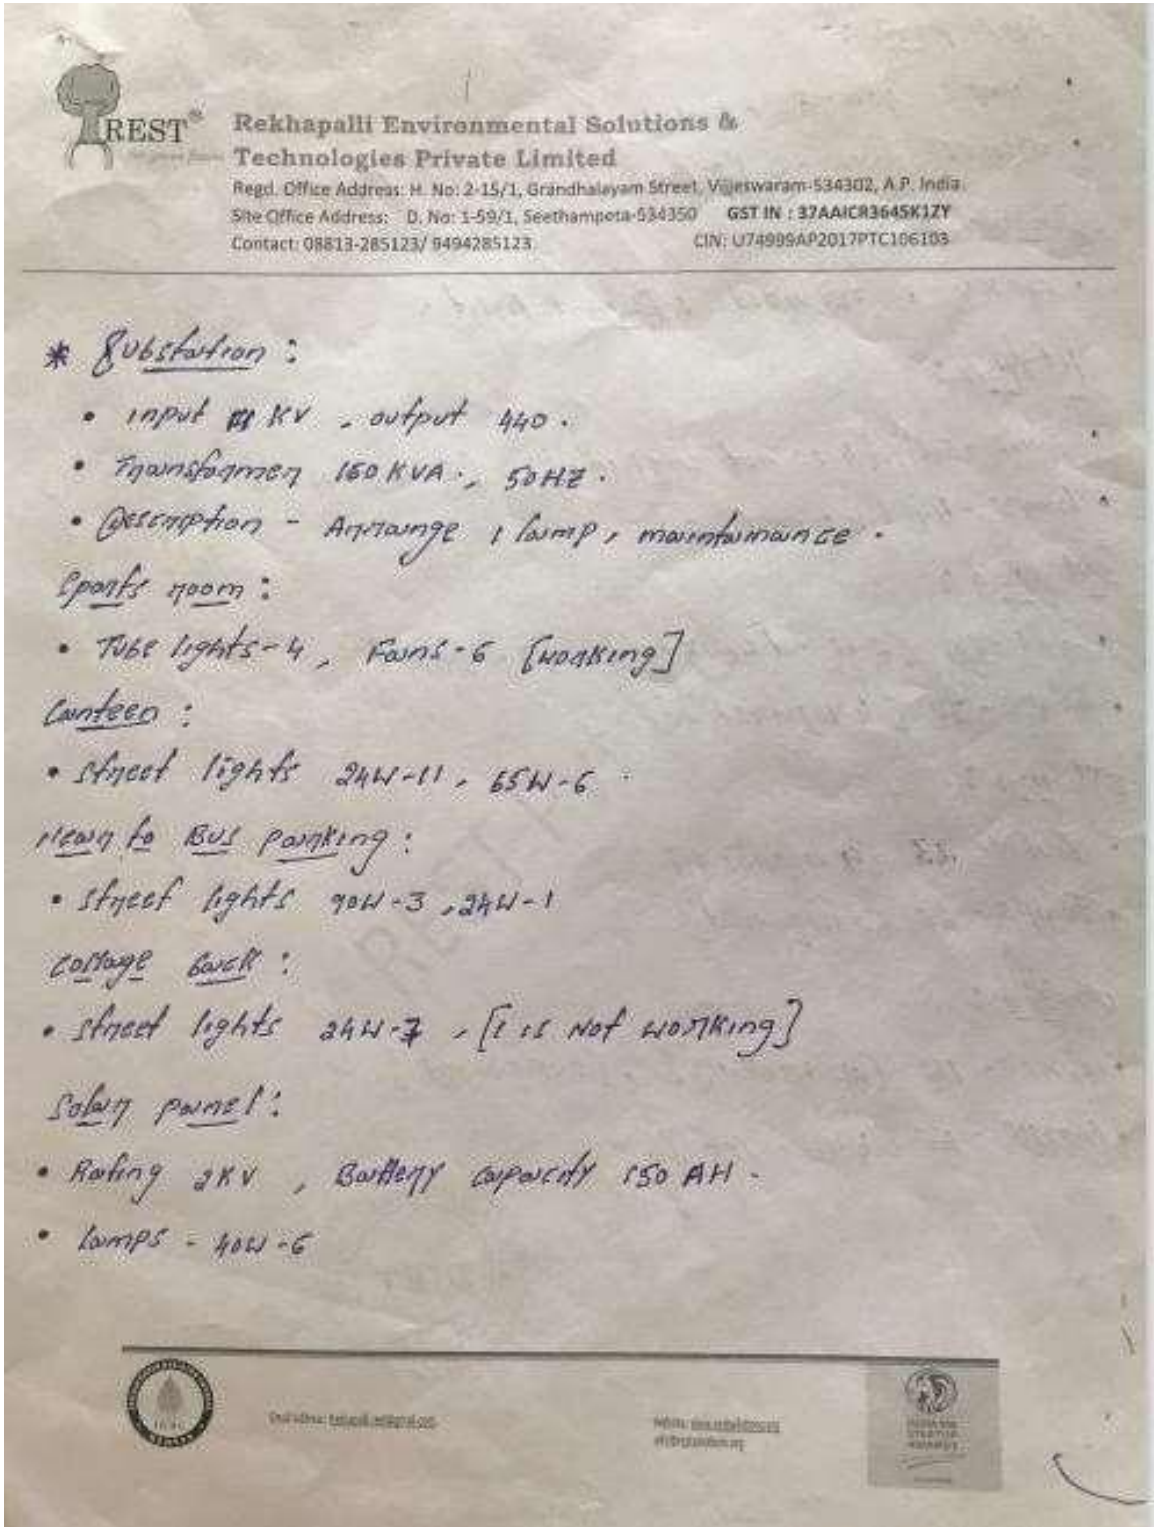 REST®
Rekhapalli Environmental Solutions &
Technologies Private Limited
Regd. Office Address: H. No: 2-15/1, Grandhalayam Street, Vijjeswaram-534302, A.P. India.
Site Office Address: D. No: 1-59/1, Seethampeta-534350 GST IN : 37AAICR3645K1ZY
Contact: 08813-285123/ 9494285123 CIN: U74999AP2017PTC106103
* Substation :
• input KV , output 440 .
• Transformer 160 KVA ., 50HZ .
• Description - Arrange 1 lamp, maintainance .
Sports room :
• Tube lights-4, Fans-6 [working]
Canteen :
• street lights 24W-11, 65W-6 .
Near to Bus parking :
• street lights 90W-3, 24W-1
Cottage back :
• street lights 24W-7 , [1 is Not working]
Solar panel :
• Rating 2KV , Battery capacity 150 AH .
• lamps - 40W-6